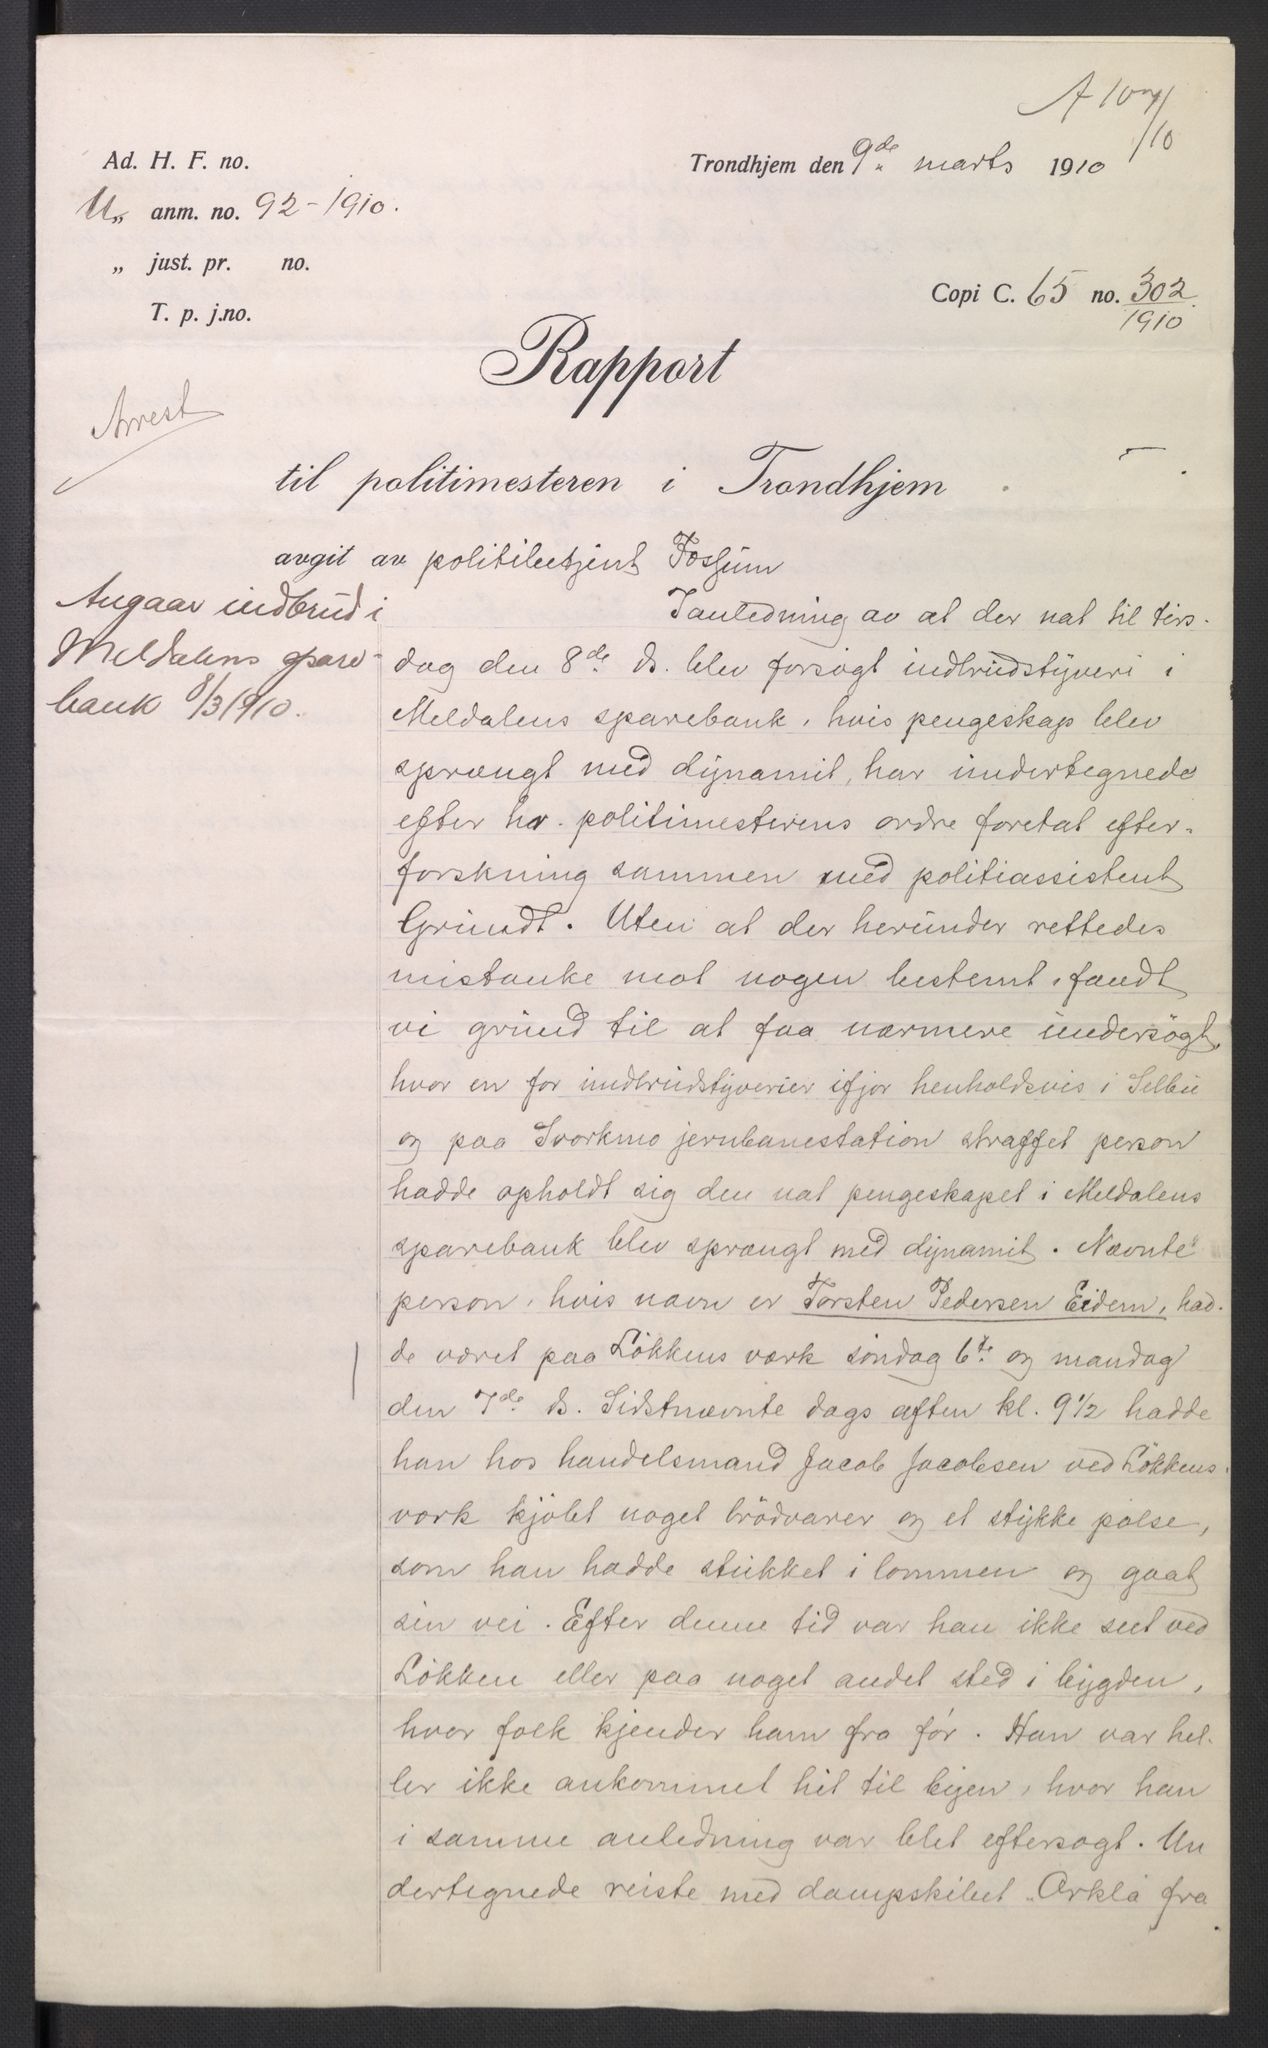 Ad. H. F. no.
Trondhjem den 9de marts 1910
/10
U„ anm. no. 92-1910.
„ just. pr. no.
Copi C. 65 no. 302
1910
T. p. j.no.
Rapport
Arrest
til politimesteren i Trondhjem
avgit av politibetjent Fossum
Angaar indbrud i
Meldalens spare-
bank 8/3 1910.
I anledning av at der nat til tirs-
dag den 8de ds. blev forsøgt indbrudstyveri i
Meldalens sparebank, hvis pengeskap blev
sprængt med dynamit, har undertegnede
efter hr. politimesterens ordre foretat efter-
forskning sammen med politiassistent
Grundt. Uten at der herunder rettedes
mistanke mot nogen bestemt, fandt
vi grund til at faa nærmere undersøgt,
hvor en for indbrudstyverier ifjor henholdsvis i Selbu
og paa Svorkmo jernbanestation straffet person
hadde opholdt sig den nat pengeskapet i Meldalens
sparebank blev sprængt med dynamit. Nævnte
person, hvis navn er Torsten Pedersen Eidem, had-
de været paa Løkkens værk søndag 6te og mandag
den 7de ds. Sidstnævnte dags aften kl. 9 1/2 hadde
han hos handelsmand Jacob Jacobsen ved Løkkens
værk kjøbt noget brødvarer og et stykke pølse,
som han hadde stukket i lommen og gaat
sin vei. Efter denne tid var han ikke seet ved
Løkken eller paa noget andet sted i bygden,
hvor folk kjender ham fra før. Han var hel-
ler ikke ankommet hit til byen, hvor han
i samme anledning var blet eftersøgt. Un
dertegnede reiste med dampskibet „Orkla fra